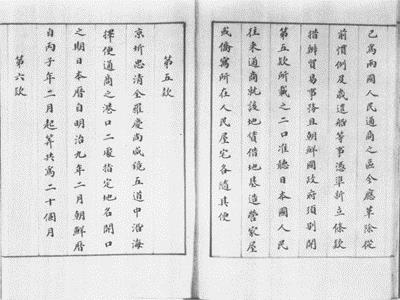 已爲兩國人民通商之區今應革除從
前慣例及歲遣船等事憑準新立條款
措辦貿易事務且朝鮮國政府須別開
第五款所載之二口准聽日本國人民
往來通商就該地賃借地基造營家屋
或僑寓所在人民屋宅各隨其便
第五款
京圻忠淸全羅慶尚咸鏡五道中沿海
擇便通商之港口二處指定地名開口
之期日本曆自明治九年二月朝鮮曆
自丙子年二月起算共爲二十個月
第六款